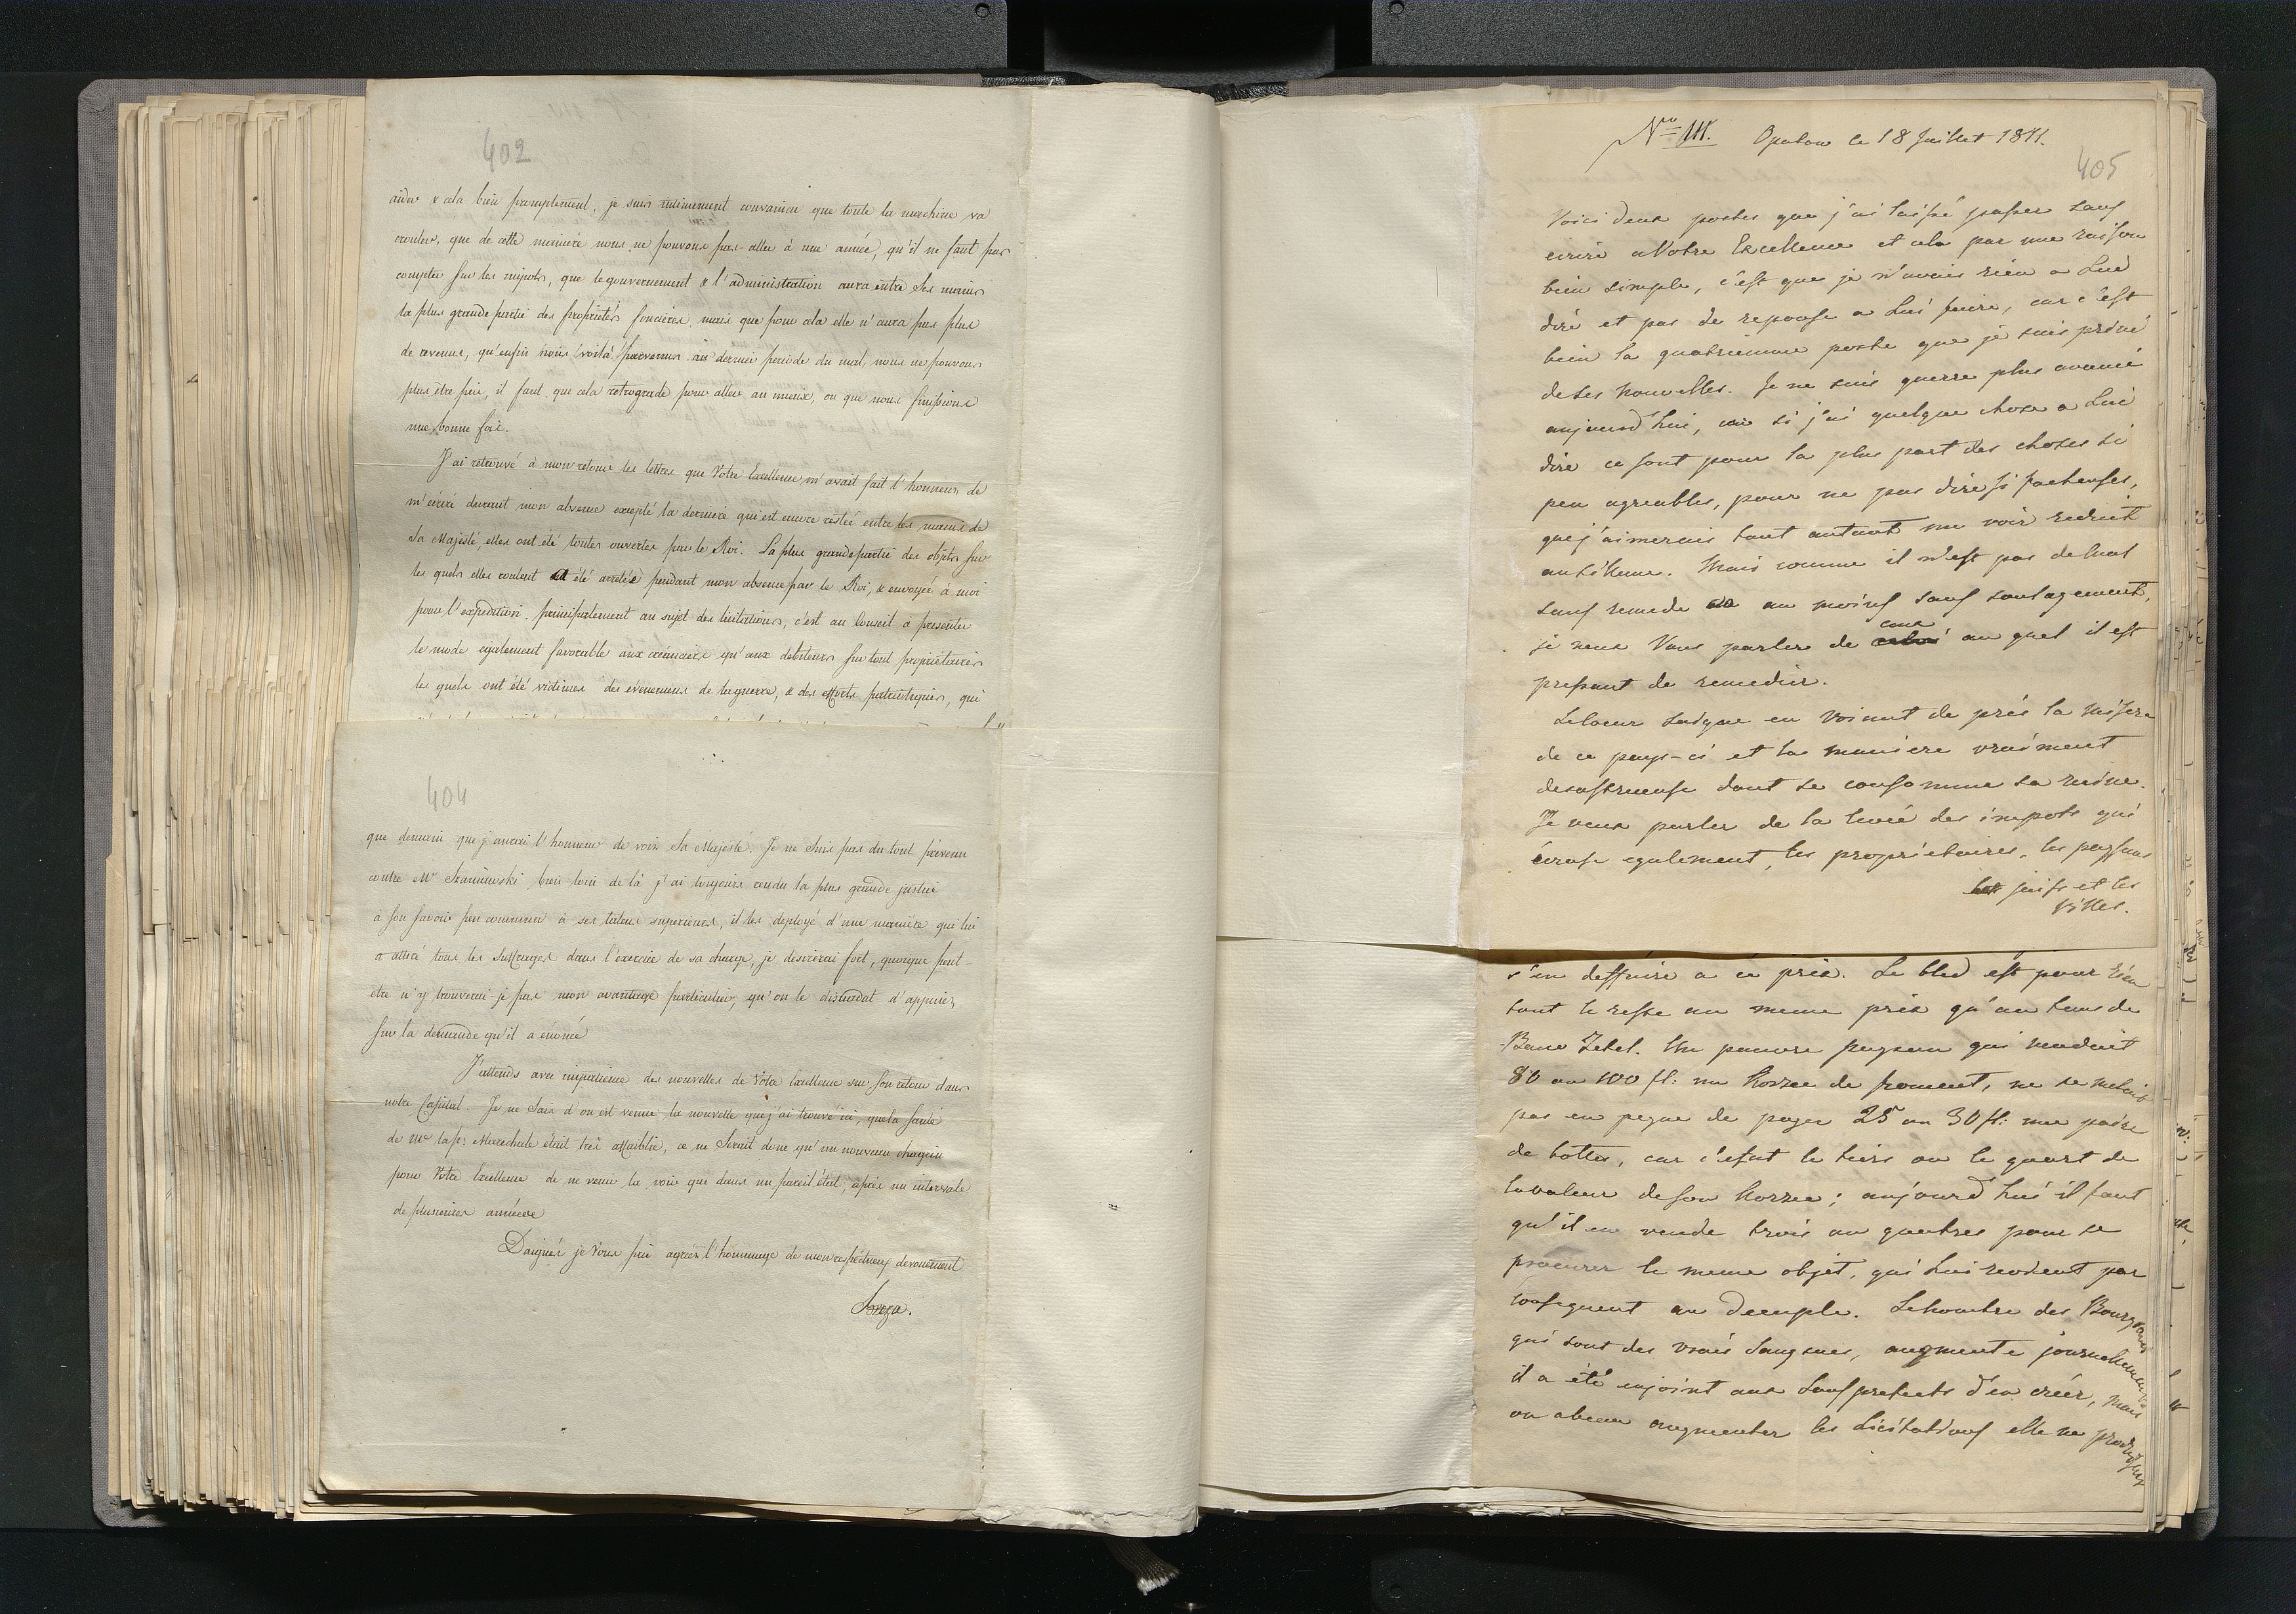 402
aider & cela bien promptement, je suis intimement convaincu que toute la machine va
crouler, que de cette maniere nous ne pouvons pas aller à une année, qu'il ne faut pas
compter sur les impots, que le gouvernement & l'administration aura entre ses mains
la plus grande partie des proprietés foncières mais que pour cela elle n'aura pas plus
de revenus, qu'enfin nous voilà parvenus au dernier periode du mal, nous ne pouvons
plus être pis, il faut que cela retrograde pour aller au mieux, ou que nous finissions
une bonne fois.
J'ai retrouvé à mon retour les lettres que Votre Excellence m'avait fait l'honneur de
m'écrire durant mon absence excepté la derniere qui est encore restée entre les mains de
Sa Majesté, elles ont été toutes ouvertes par le Roi. La plus grande partie des objets sur
les quels elles roulent a été arretée pendant mon absence par le Roi, & envoyée à moi
pour l'expedition. principalement au sujet des licitations, c'est au Conseil à presenter
le mode egalement favorable aux créanciers qu'aux debiteurs sur tout propriétaires
les quels ont été victimes des évenemens de la guerre, & des efforts patriotiques, qui
404
que demain que j'aurai l'honneur de voir Sa Majesté. Je ne suis pas du tout prévenu
contre Mr Szaniawski bien loin de là j'ai toujours rendu la plus grande justice
à son savoir peu commun à ses talens superieurs, il les deployé d'une manière qui lui
a attiré tous les suffrages dans l'exercice de sa charge, je desirerai fort, quoique peut-
etre n'y trouverai-je pas mon avantage particulier, qu'on le dissuadat d'appuier
sur la demande qu'il a énoncé
J'attends avec impatience des nouvelles de Votre Excellence sur son retour dans
notre Capital. Je ne sais d'ou est venue la nouvelle que j'ai trouvé ici, que la santé
de Me la Pr. Marechale était très affaiblie, ce ne serait donc qu'un nouveau chagrin
pour Votre Excellence de ne venir la voir que dans un pareil état, après un intervale
de plusieurs années
Daignés je Vous prie agréer l'hommage de mon respectueux devouement
Breza.
No III. Opatow le 18 Juillet 1811.
405
Voici deux postes que j'ai laissé passer sans
ecrire a Votre Excellence et cela par une raison
bien simple, c'est que je n'avais rien a Lui
dire et pas de reponse a Lui faire, car c'est
bien la quatrieme poste que je suis privé
de ses nouvelles. Je ne suis guerre plus avancé
aujourd'hui, car si j'ai quelque chose a Lui
dire ce sont pour la plus part des choses si
peu agreables, pour ne pas dire si facheuses,
que j'aimerais tout autant me voir reduit
au silence. Mais comme il n'est pas de mal
sans remede ou au moins sans soulagement,
je veux Vous parler de ceux au quel il est
pressant de remedier.
Le coeur saigne en voiant de près la misere
de ce pays-ci et la maniere vraiment
desastreuse dont se consomme sa ruine.
Je veux parler de la levée des impots qui
écrase egalement, les proprietaires, les paysans
les juifs et les
villes.
s'en deffaire a ce prix. Le bled est pour rien
tout le reste au meme prix qu'au tems de
Banco Zetel. Un pauvre paysan qui vendait
80 ou 100 fl: un Korzec de froment, ne se mettait
pas en peine de payer 25 ou 30 fl: une paire
de bottes, car c'était le tiers ou le quart de
la valeur de son Korzec; aujourd'hui il faut
qu'il en vende trois ou quatres pour se
procurer le meme objet, qui lui revient par
consequent au decuple. Le nombre des
qui sont des vrais sangsues, augmente journellement
il a été enjoint aux sousprefets d'en créer, mais
on a beau augmenter les licitations elle ne